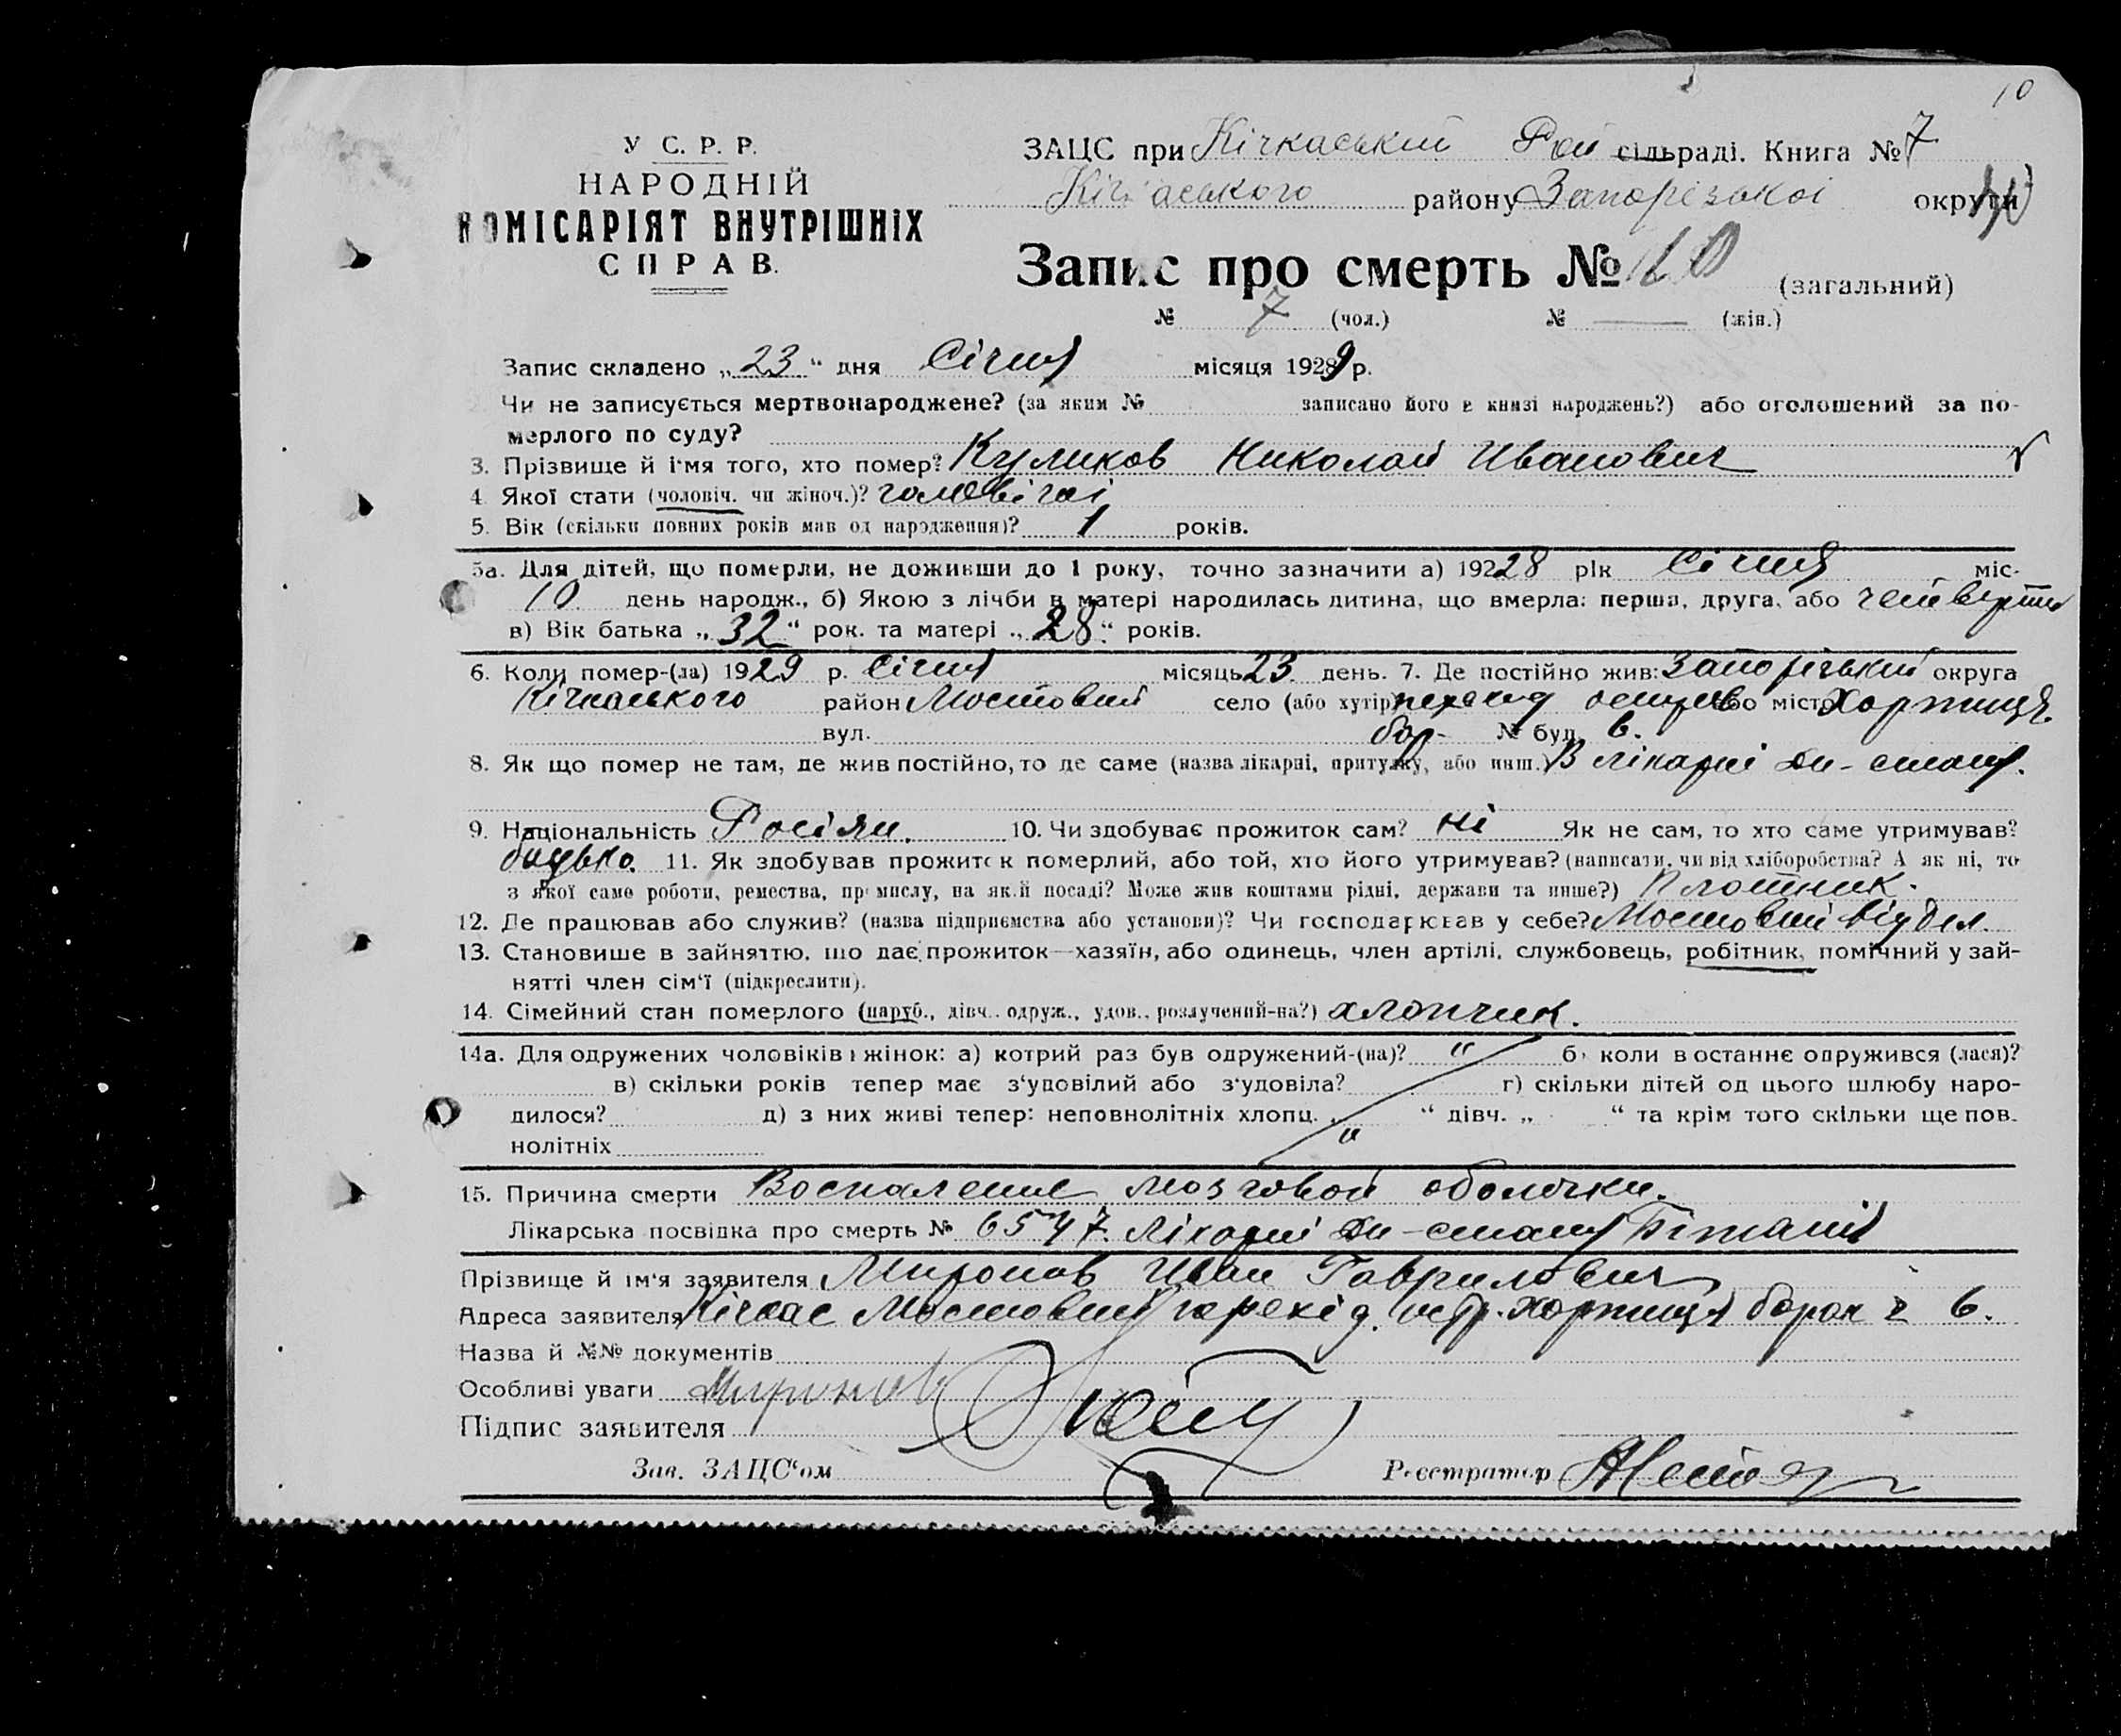 10
У С. Р. Р.
НАРОДНІЙ
КОМІСАРІЯТ ВНУТРІШНІХ
СПРАВ.
ЗАЦС при Кічкаський Рай сільраді. Книга № 7
Кічкаського району Запорізької округи
Запис про смерть № 10 (загальний)
№ 7 (чол.) № — (жін.)
Запис складено „23“ дня Січня місяця 1929 р.
Чи не записується мертвонароджене? (за яким № записано його в книзі народжень?) або оголошений за по-
мерлого по суду?
3. Прізвище й ім'я того, хто помер? Куликов Николай Иванович
4. Якої стати (чоловіч. чи жіноч.)? чоловічої
5. Вік (скільки повних років мав од народження)? 1 років.
5а. Для дітей, що померли, не доживши до 1 року, точно зазначити а) 19228 рік Січня міс-
10 день народж., б) Якою з лічби в матері народилась дитина, що вмерла: перша, друга, або
в) Вік батька „32“ рок. та матері „28“ років.
6. Коли помер-(ла) 1929 р. Січня місяць 23 день. 7. Де постійно жив: Запорізький округа
Кічкаського район Мостовий село (або хутір) переход остров або місто Хортиця.
вул. бар- № буд. 6.
8. Як що помер не там, де жив постійно, то де саме (назва лікарні, притулку, або инш.) В лікарні Дн-стану.
9. Національність Росіян. 10. Чи здобуває прожиток сам? ні Як не сам, то хто саме утримував?
батько. 11. Як здобував прожиток померлий, або той, хто його утримував? (написати, чи від хліборобства? А як ні, то
з якої саме роботи, ремества, промислу, на якій посаді? Може жив коштами рідні, держави та инше?) Плотник.
12. Де працював або служив? (назва підприємства або установи)? Чи господарював у себе? Мостовий відділ.
13. Становише в зайняттю, що дає прожиток—хазяїн, або одинець, член артілі, службовець, робітник, помічний у зай-
нятті член сім'ї (підкреслити).
14. Сімейний стан померлого (паруб., дівч., одруж., удов., розлучений-на?) хлопчик.
14а. Для одружених чоловіків і жінок: а) котрий раз був одружений-(на)? " б) коли востаннє одружився (лася)?
в) скільки років тепер має з'удовілий або з'удовіла? г) скільки дітей од цього шлюбу наро-
дилося? д) з них живі тепер: неповнолітніх хлопц. „ “ дівч. „ “ та крім того скільки ще пов-
нолітніх "
15. Причина смерти Воспаление мозговой оболочки.
Лікарська посвідка про смерть № 6547. Лікарні Дн-стану
Прізвище й ім'я заявителя Миронов Иван Гаврилович
Адреса заявителя Кічкас Мостовий перехід. остр. Хортиця барак № 6.
Назва й №№ документів
Особливі уваги Миронов
Підпис заявителя
Зав. ЗАЦС'ом Реєстратор